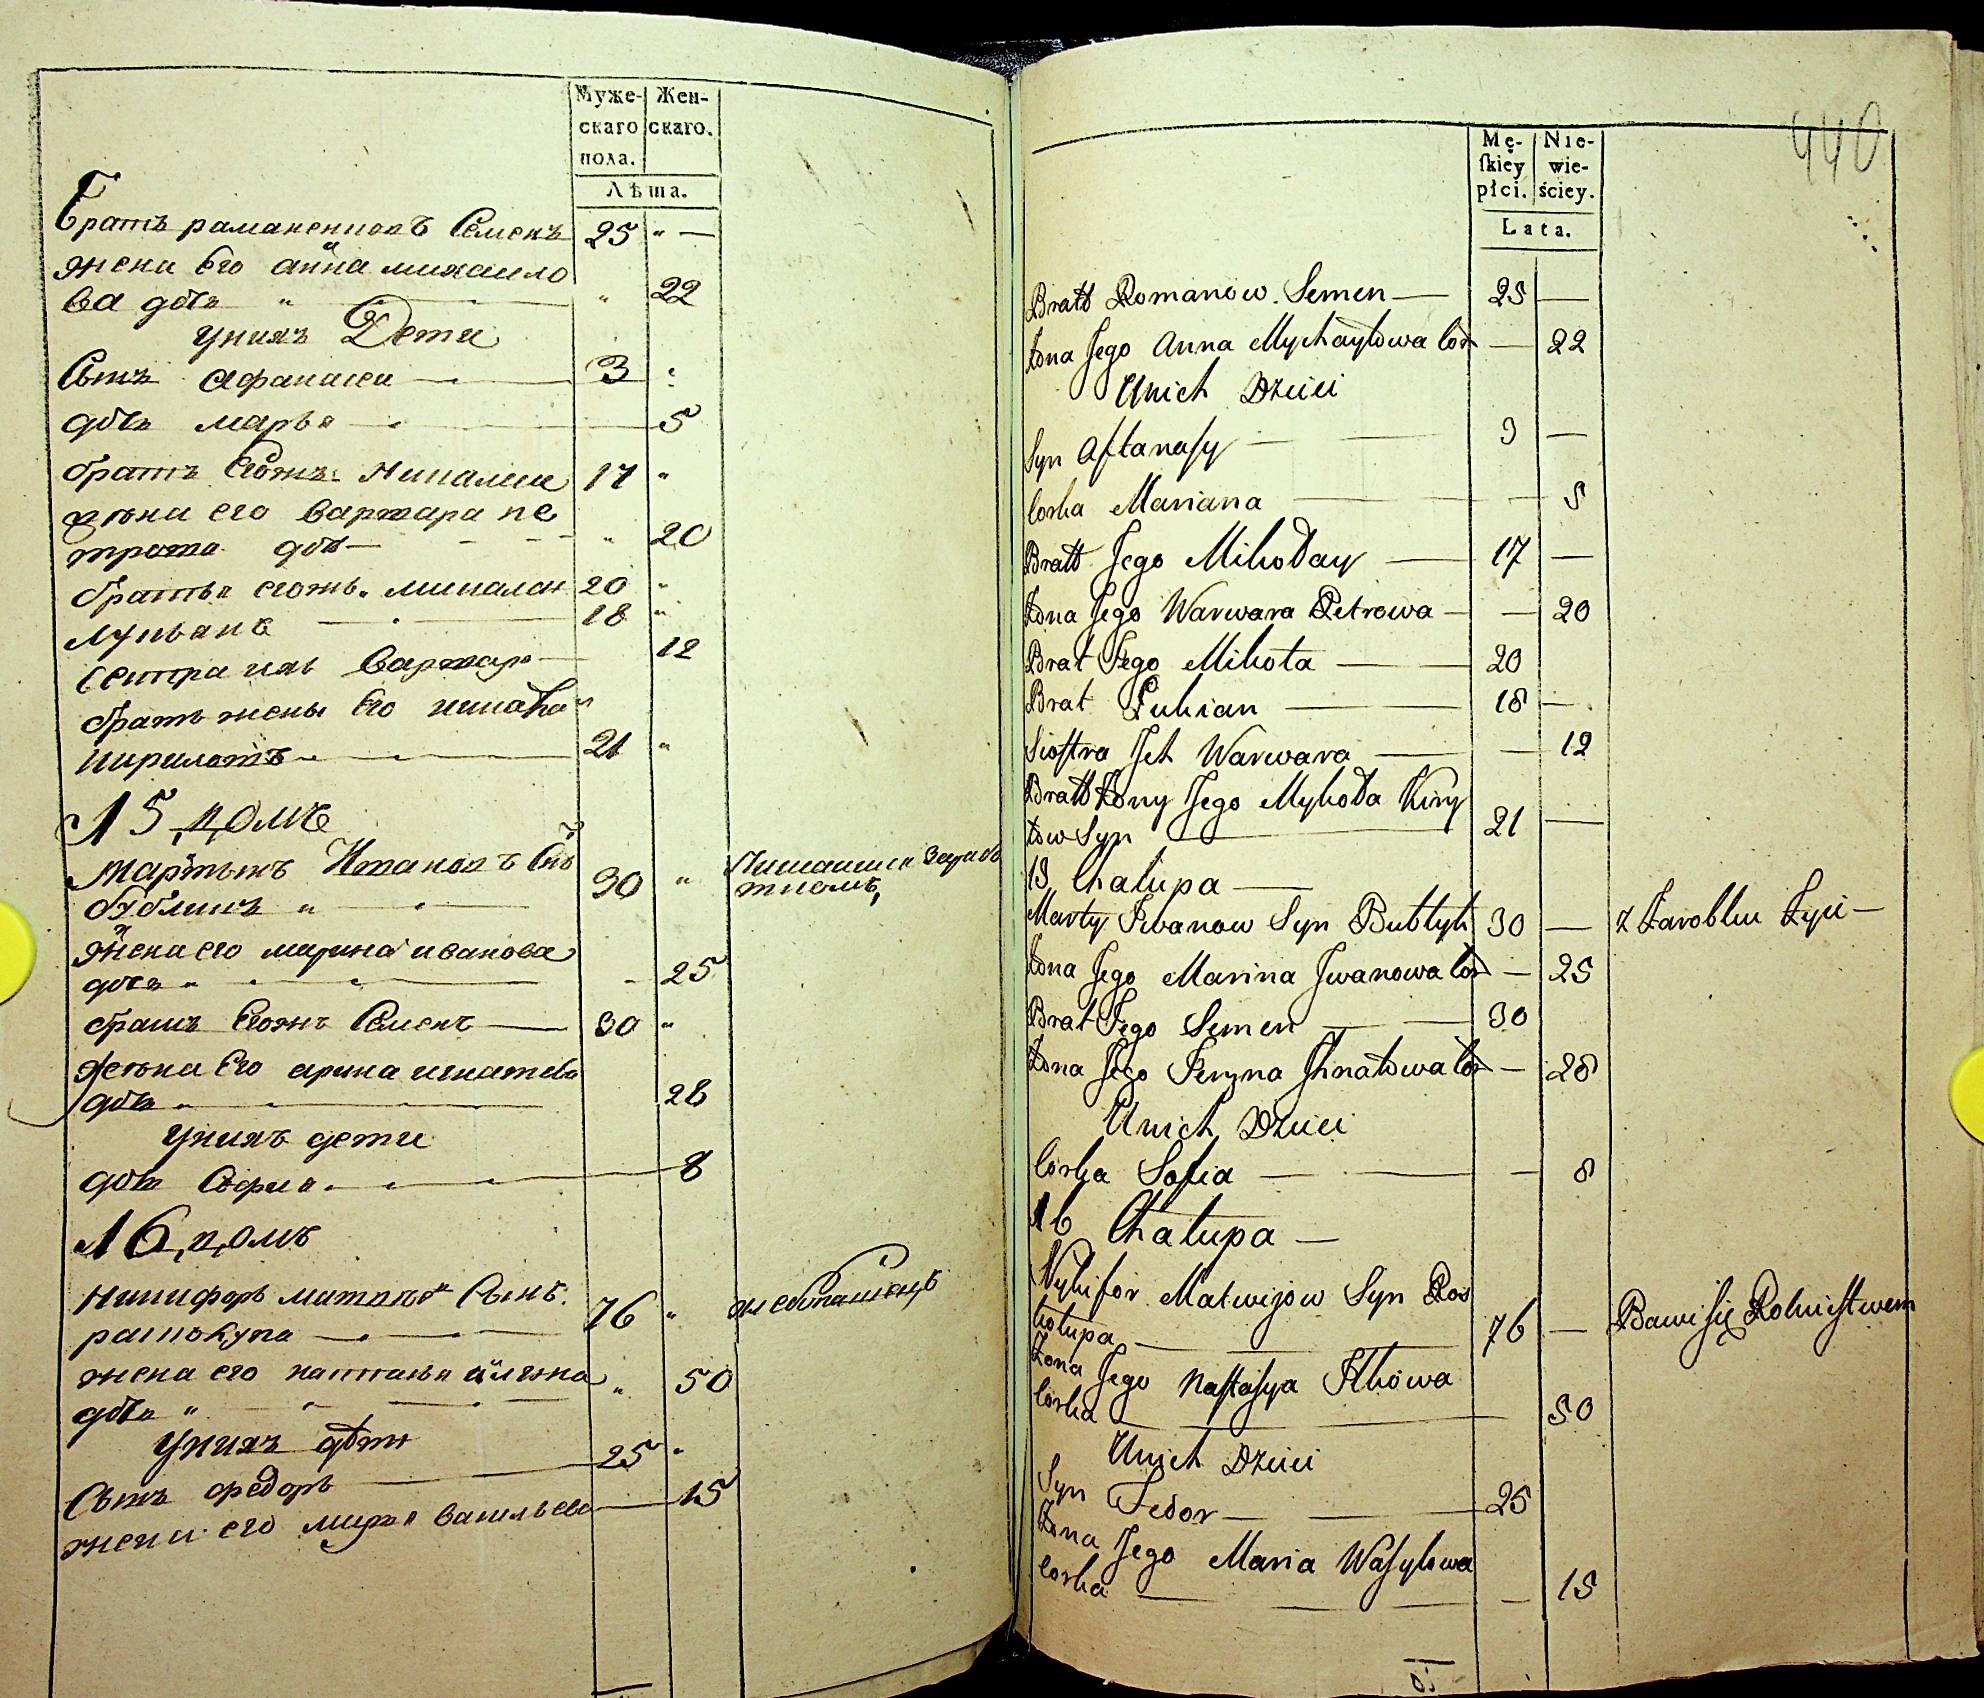 Муже-
скаго
пола.
Жен-
скаго.
Лѣта.
братъ романенковъ Семенъ 25 " —
жена его анна михаило
ва дочь " " 22
у нихъ Дети
Сынъ Афанасеи 3 "
дочь марья 5
братъ Егожъ Николаи 17 "
жена его варвара пе
трова дочь " 20
братья егожъ миколаи 20 "
лукьянъ 18 "
сестра ихъ варвара 12
братъ жены его никола
кириловъ 21 "
15 домъ
мартынъ Ивановъ Снъ
бубликъ " 30 "
жена его марина иванова
дочь " 25
братъ Егожъ Семенъ 30 "
жена Его арина игнатева
дочь " 28
у нихъ дети
дочь София 8
16 домъ
Никифоръ матвѣевъ Сынъ
76 " хлебопашецъ
жена его настасья
дочь " " 50
у нихъ дѣти
Сынъ федоръ 25 "
жена его марья васильева 15
440
Mę-
ſkiey
płci.
Nie-
wie-
ściey.
Lata.
Bratt Romanow. Semen — 25 —
Żona Jego Anna Mychayłowa Cor — 22
Unich Dzieci
Syn Aftanaſy — 3 —
Corka Mariana — 5
Bratt Jego Mikołay — 17 —
Żona Jego Warwara Petrowa — 20
Brat Jego Mikoła — 20
Brat Łukian — 18 —
Sioſtra Jch Warwara — 12
Bratt Żony Jego Mykoła Kiry
łow Syn — 21 —
15 Chałupa —
Marty Jwanow Syn Bublyk 30 — z Zarobku Życi —
Żona Jego Marina Jwanowa Cor — 25
Brat Jego Semen — 30
Żona Jego Jeryna Jhnatowa Cor — 28
Unich Dzieci
Corka Sofia — 8
16 Chałupa —
Nykifor Matwijow Syn Ros
kołupa — 76 — Bawi się Rolnictwem
Żona Jego Naſtaſya Jlkowa
Corka — 50
Unich Dzieci
Syn Fedor — 25
Żona Jego Maria Waſylowa
Corka — 15